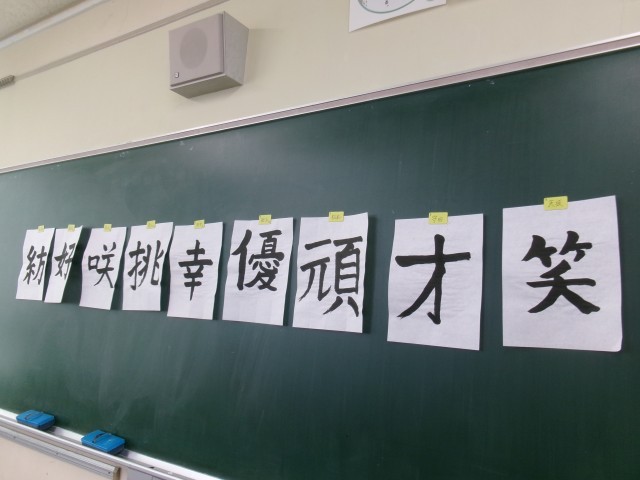 紡 好 咲 挑 幸 優 頑 才 笑